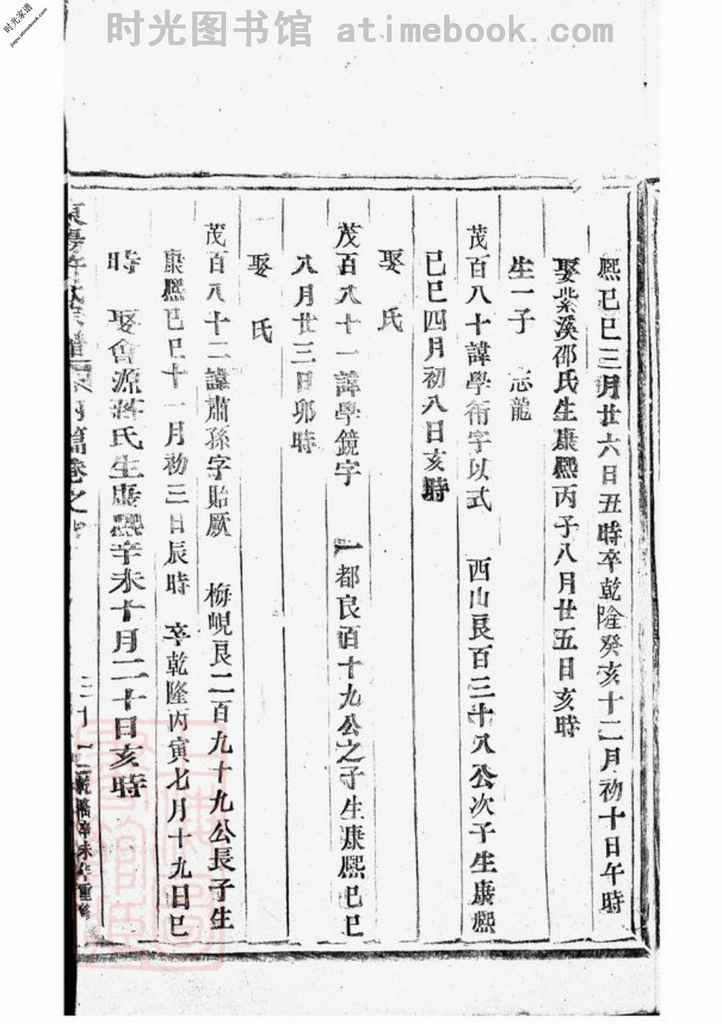 时光家谱
jiapu.atimebook.com
时光图书馆 atimebook.com
熙己巳三月廿六日丑時卒乾隆癸亥十二月初十日午時
娶紫溪邵氏生康熙丙子八月廿五日亥時
生一子 志龍
茂百八十諱學術字以式 西山良百三十八公次子生康熙
己巳四月初八日亥時
娶 氏
茂百八十一諱學鏡字 一都良百十九公之子生康熙己巳
八月廿三日卯時
娶 氏
茂百八十二諱肅孫字貽厥 梅峴良二百九十九公長子生
康熙己巳十一月初三日辰時 卒乾隆丙寅七月十九日巳
時 娶會源蔣氏生康熙辛未十月二十日亥時
宗譜 篇卷之 乾隆辛未年重修